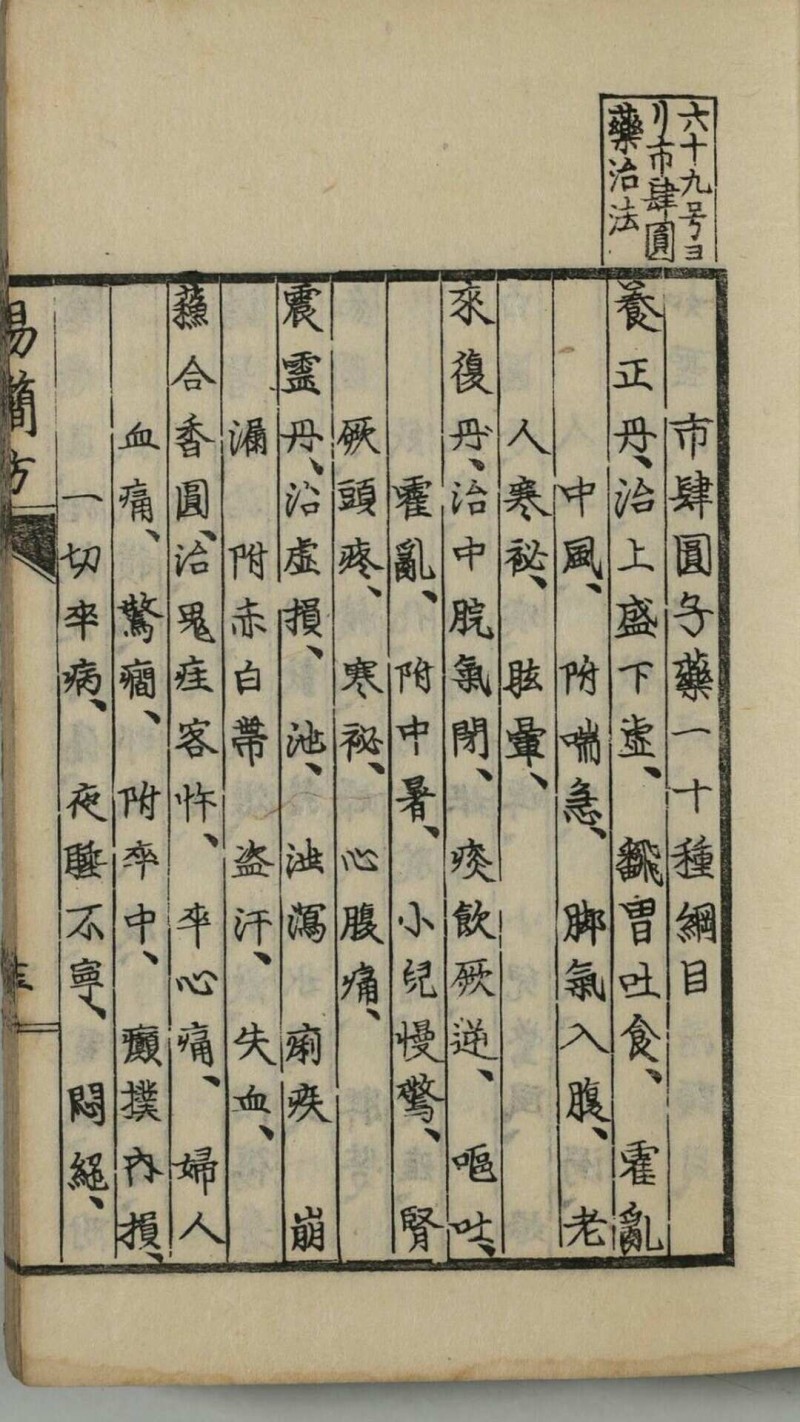 六十九号ヨ
リ市肆圓
藥治法
市肆圓子藥一十種綱目
養正丹、治上盛下虚、飜胃吐食、霍亂
中風、附喘急、脚氣入腹、老
人寒祕、眩暈、
來復丹、治中脘氣閉、痰飲厥逆、嘔吐、
霍亂、附中暑、小兒慢驚、腎
厥頭疼、寒祕、心腹痛、
震霊丹、治虚損、池、浊瀉 痢疾 崩
漏 附赤白帶 盗汗、失血、
蘓合香圓、治鬼疰客忤、卒心痛、婦人
血痛、驚癎、附卒中、癲撲内損、
一切卒病、夜睡不寧、悶絕、
易簡方